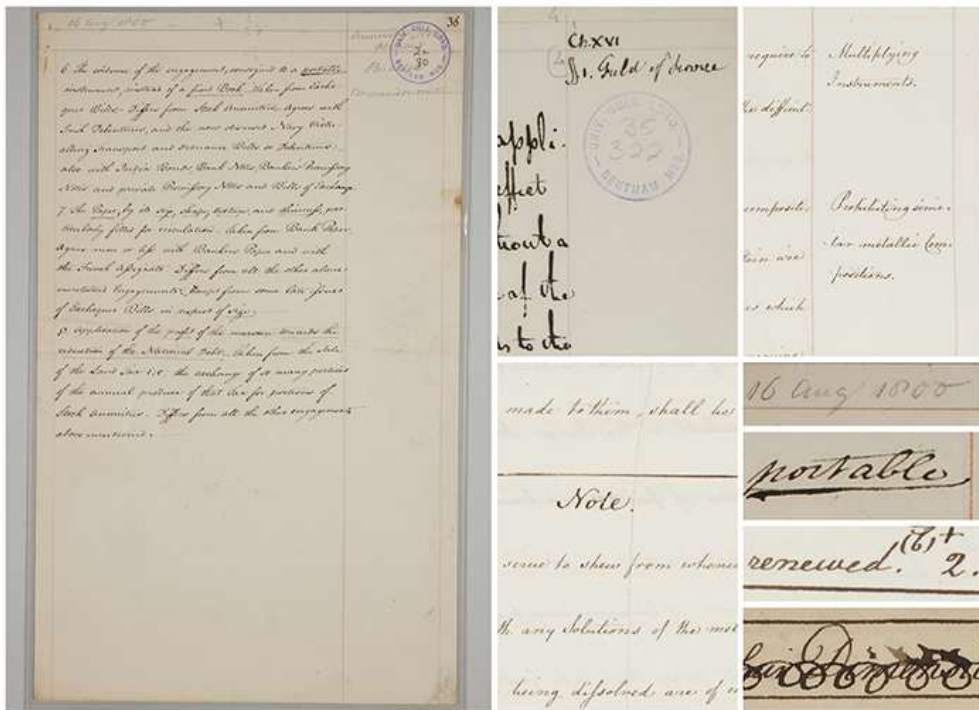 16 Aug 1800
36
UNIV. COLL. LOND.
BENTHAM MSS.
6. The evidence of the engagement, consigned to a portable
instrument, instead of a fixed Book. Taken from Exche-
quer Bills. Differs from Stock Annuities. Agrees with
Irish Debentures, and the now disused Navy Victu-
alling Transport and Ordnance Bills or Debentures;
also with India Bonds, Bank Notes, Bankers Promissory
Notes and private Promissory Notes and Bills of Exchange.
7. The Paper, by its size, shape, texture, and thinness, par-
ticularly fitted for circulation. Taken from Bank Paper.
Agrees more or less with Bankers Paper and with
the French Assignats. Differs from all the other above
mentioned Engagements, Except from some late Issues
of Exchequer Bills in respect of size.
Application of the profit of the measure towards the
reduction of the National Debt. Taken from the Sale
of the Land Tax: i:e: the exchange of so many portions
of the annual produce of that tax for portions of
Stock Annuities. Differs from all the other engagements
above mentioned.
Ch. XVI
§1. Field of
UNIV. COLL. LOND.
35
322
BENTHAM MSS.
appli-
effect
thout a
of the
to the
require to
Multiplying
Instruments.
difficult
composite
Prohibiting simi-
-lar metallic Com-
positions.
which
made to them, shall be
Note.
serve to shew from whence
any Solutions of the
being dissolved are of
16 Aug 1800
portable
renewed. (b)+ 2.